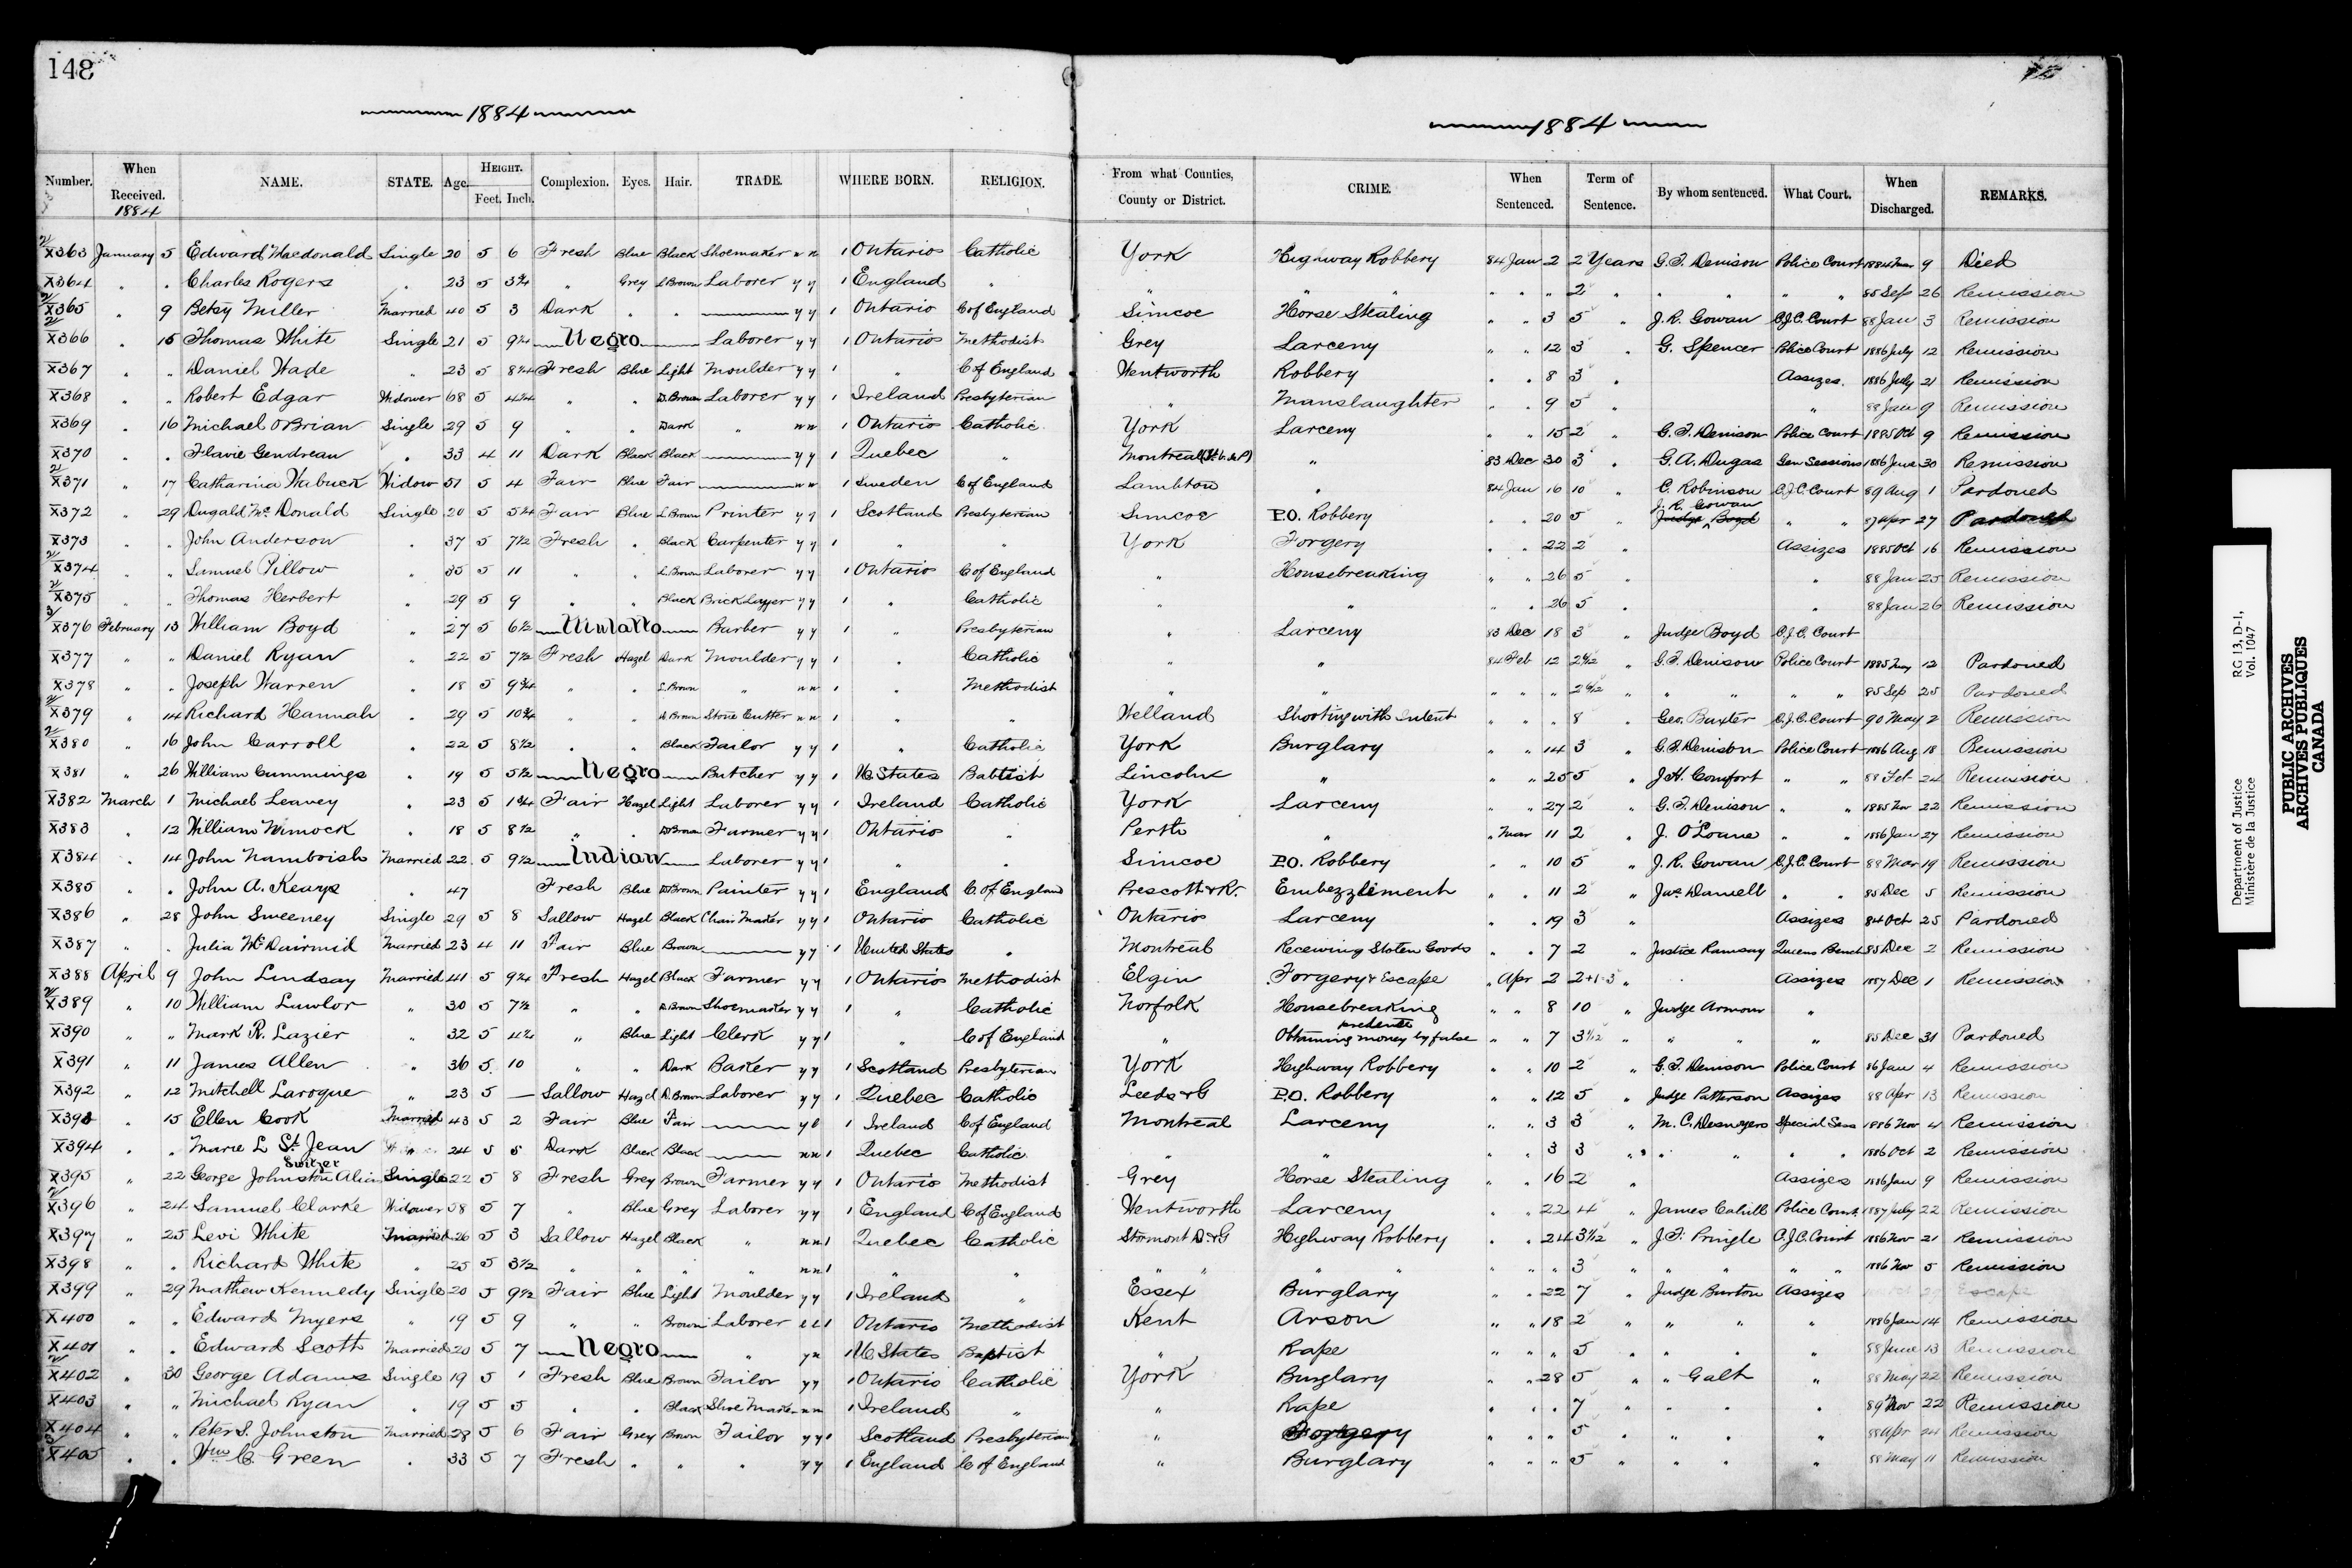 148
1884
1884
Number. When Received. 1884 NAME. STATE. Age. HEIGHT. Feet. Inch. Complexion. Eyes. Hair. TRADE. WHERE BORN. RELIGION. From what Counties, County or District. CRIME. When Sentenced. Term of Sentence. By whom sentenced. What Court. When Discharged. REMARKS.
X363 January 5 Edward Macdonald Single 20 5 6 Fresh Blue Black Shoemaker n n 1 Ontario Catholic York Highway Robbery 84 Jan 2 2 Years G.T. Denison Police Court 1884 9 Died
X364 " " Charles Rogers " 23 5 3¾ " Grey L Brown Laborer y y 1 England " " " " " " " 2 " " " " " 85 Sep 26 Remission
X365 " 9 Betsy Miller Married 40 5 3 Dark " " — y y 1 Ontario C of England Simcoe Horse Stealing " " 3 5 " J.R. Gowan C.J.C. Court 88 Jan 3 Remission
X366 " 15 Thomas White Single 21 5 9¼ Negro Laborer y y 1 Ontario Methodist Grey Larceny " " 12 3 " G. Spencer Police Court 1886 July 12 Remission
X367 " " Daniel Wade " 23 5 8¼ Fresh Blue Light Moulder y y 1 " C of England Wentworth Robbery " " 8 3 " Assizes. 1886 July 21 Remission
X368 " " Robert Edgar Widower 68 5 4¼ " " D. Brown Laborer y y 1 Ireland Presbyterian " Manslaughter " " 9 5 " " 88 Jan 9 Remission
X369 " 16 Michael OBrian Single 29 5 9 " " Dark " n n 1 Ontario Catholic York Larceny " " 15 2 " G.T. Denison Police Court 1885 Oct 9 Remission
X370 " " Flavie Gendreau " 33 4 11 Dark Black Black — y y 1 Quebec " Montreal " 83 Dec 30 3 " G.A. Dugas Gen Sessions 1886 June 30 Remission
X371 " 17 Catharina Wabuck Widow 51 5 4 Fair Blue Fair — n n 1 Sweden C of England Lambton " 84 Jan 16 10 " C. Robinson C.J.C. Court 89 Aug 1 Pardoned
X372 " 29 Dugald McDonald Single 20 5 5¼ Fair Blue L Brown Printer y y 1 Scotland Presbyterian Simcoe P.O. Robbery " " 20 5 " J.R. Gowan Judge Boyd " " 87 Apr 27 Pardoned
X373 " " John Anderson " 37 5 7½ Fresh " Black Carpenter y y 1 " " York Forgery " " 22 2 " Assizes 1885 Oct 16 Remission
X374 " " Samuel Pillow " 35 5 11 " " L. Brown Laborer y y 1 Ontario C of England " Housebreaking " " 26 5 " " 88 Jan 25 Remission
X375 " " Thomas Herbert " 29 5 9 " " Black Bricklayer y y 1 " Catholic " " " " 26 5 " " 88 Jan 26 Remission
X376 February 13 William Boyd " 27 5 6½ Mulatto Barber y y 1 " Presbyterian " Larceny 83 Dec 18 3 " Judge Boyd C.J.C. Court
X377 " " Daniel Ryan " 22 5 7½ Fresh Hazel Dark Moulder y y 1 " Catholic " " 84 Feb 12 " G.T. Denison Police Court 1885 12 Pardoned
X378 " " Joseph Warren " 18 5 9¾ " " L. Brown " n n 1 " Methodist " " " " " 2 6/12 " " " " " 85 Sep 25 Pardoned
X379 " 14 Richard Hannah " 29 5 10¾ " " D. Brown Stone Cutter n n 1 " " Welland Shooting with Intent " " " 8 " Geo. Baxter C.J.C. Court 90 May 2 Remission
X380 " 16 John Carroll " 22 5 8½ " " Black Tailor y y 1 " Catholic York Burglary " " 14 3 " G.T. Denison Police Court 1886 Aug 18 Remission
X381 " 26 William Cummings " 19 5 5½ Negro Butcher y y 1 U. States Babtist Lincoln " " " 25 5 " J.H. Comfort " " 88 24 Remission
X382 March 1 Michael Leavey " 23 5 1¾ Fair Hazel Light Laborer y y 1 Ireland Catholic York Larceny " " 27 2 " G.T. Denison " " 1885 Nov 22 Remission
X383 " 12 William Nimock " 18 5 8½ " " D Brown Farmer y y 1 Ontario " Perth " " Mar 11 2 " J. O'Loane " " 1886 Jan 27 Remission
X384 " 14 John Namboish Married 22 5 9½ Indian Laborer y y 1 " " Simcoe P.O. Robbery " " 10 5 " J.R. Gowan C.J.C. Court 88 Mar 19 Remission
X385 " " John A. Keays " 47 Fresh Blue D Brown Painter y y 1 England C. of England Prescott & R. Embezzlement " " 11 2 " Jas Daniell " " 85 Dec 5 Remission
X386 " 28 John Sweeney Single 29 5 8 Sallow Hazel Black Chair Maker y y 1 Ontario Catholic Ontario Larceny " " 19 3 " Assizes 84 Oct 25 Pardoned
X387 " " Julia McDairmid Married 23 4 11 Fair Blue Brown — y y 1 United States " Montreal Receiving Stolen Goods " " 7 2 " Justice Ramsay Queens Bench 85 Dec 2 Remission
X388 April 9 John Lindsay Married 41 5 9¼ Fresh Hazel Black Farmer y y 1 Ontario Methodist Elgin Forgery & Escape " Apr 2 2+1=3 " Assizes 1887 Dec 1 Remission
X389 " 10 William Lawlor " 30 5 7½ " " D. Brown Shoemaker y y 1 " Catholic Norfolk Housebreaking " " 8 10 " Judge Armour "
X390 " " Mark R. Lazier " 32 5 " Blue Light Clerk y y 1 " C of England " Obtaining money by false pretence " " 7 3 1/12 " " " " 85 Dec 31 Pardoned
X391 " 11 James Allen " 36 5 10 " " Dark Baker y y 1 Scotland Presbyterian York Highway Robbery " " 10 2 " G.T. Denison Police Court 86 Jan 4 Remission
X392 " 12 Mitchell Laroque " 23 5 — Sallow Hazel D. Brown Laborer y y 1 Quebec Catholic Leeds & G P.O. Robbery " " 12 5 " Judge Patterson Assizes 88 Apr 13 Remission
X393 " 15 Ellen Cook Married 43 5 2 Fair Blue Fair — 1 Ireland C of England Montreal Larceny " " 3 3 " M.C. Desnoyers Special Sess 1886 Nov 4 Remission
X394 " " Marie L St. Jean 24 5 5 Dark Black Black — n n 1 Quebec Catholic " " " " 3 3 " " " " " 1886 Oct 2 Remission
X395 " 22 George Johnston Alias Switzer Single 22 5 8 Fresh Grey Brown Farmer y y 1 Ontario Methodist Grey Horse Stealing " " 16 2 " Assizes 1886 Jan 9 Remission
X396 " 24 Samuel Clarke Widower 58 5 7 " Blue Grey Laborer y y 1 England C of England Wentworth Larceny " " 22 4 " James Cahill Police Court 1887 July 22 Remission
X397 " 25 Levi White Married 26 5 3 Sallow Hazel Black " n n 1 Quebec Catholic Stormont D & G Highway Robbery " " 24 3 1/12 " J.F. Pringle C.J.C. Court 1886 Nov 21 Remission
X398 " " Richard White " 25 5 3½ " " " " n n 1 " " " " " " " " " 3 " " " " " 1886 Nov 5 Remission
X399 " 29 Mathew Kennedy Single 20 5 9½ Fair Blue Light Moulder y y 1 Ireland " Essex Burglary " " 22 7 " Judge Burton Assizes Escape
X400 " " Edward Myers " 19 5 9 " " Brown Laborer 1 Ontario Methodist Kent Arson " " 18 2 " " " " 1886 Jan 14 Remission
X401 " " Edward Scott Married 20 5 7 Negro " y n 1 U States Baptist " Rape " " " 5 " " " " 88 June 13 Remission
X402 " 30 George Adams Single 19 5 1 Fresh Blue Brown Tailor y y 1 Ontario Catholic York Burglary " " 28 5 " " Galt " 88 May 22 Remission
X403 " " Michael Ryan " 19 5 5 " " Black Shoe Maker n n 1 Ireland " " Rape " " " 7 " " " " 89 Nov 22 Remission
X404 " " Peter S. Johnston Married 28 5 6 Fair Grey Brown Tailor y y 1 Scotland Presbyterian " Forgery " " " 5 " " " " 88 Apr 24 Remission
X405 " " Wm C Green " 33 5 7 Fresh " " " y y 1 England C of England " Burglary " " " 5 " " " " 88 May 11 Remission
Department of Justice RG 13, D-1,
Ministère de la Justice Vol. 1047
PUBLIC ARCHIVES
ARCHIVES PUBLIQUES
CANADA